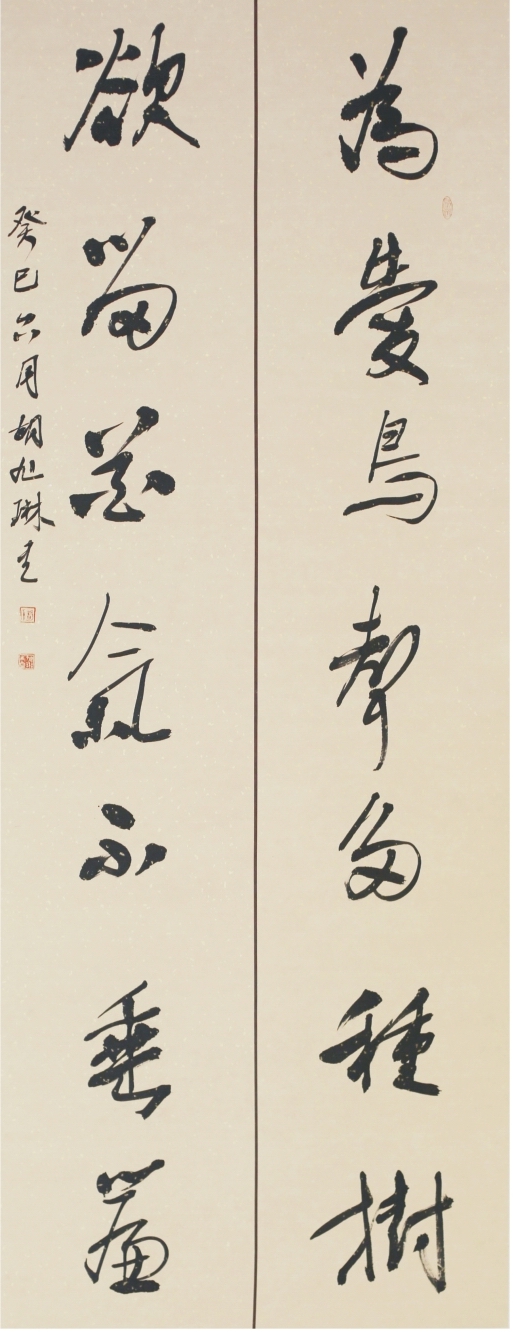 為愛鳥聲多種樹
欲留花氣不垂簾
癸巳六月胡旭琳书